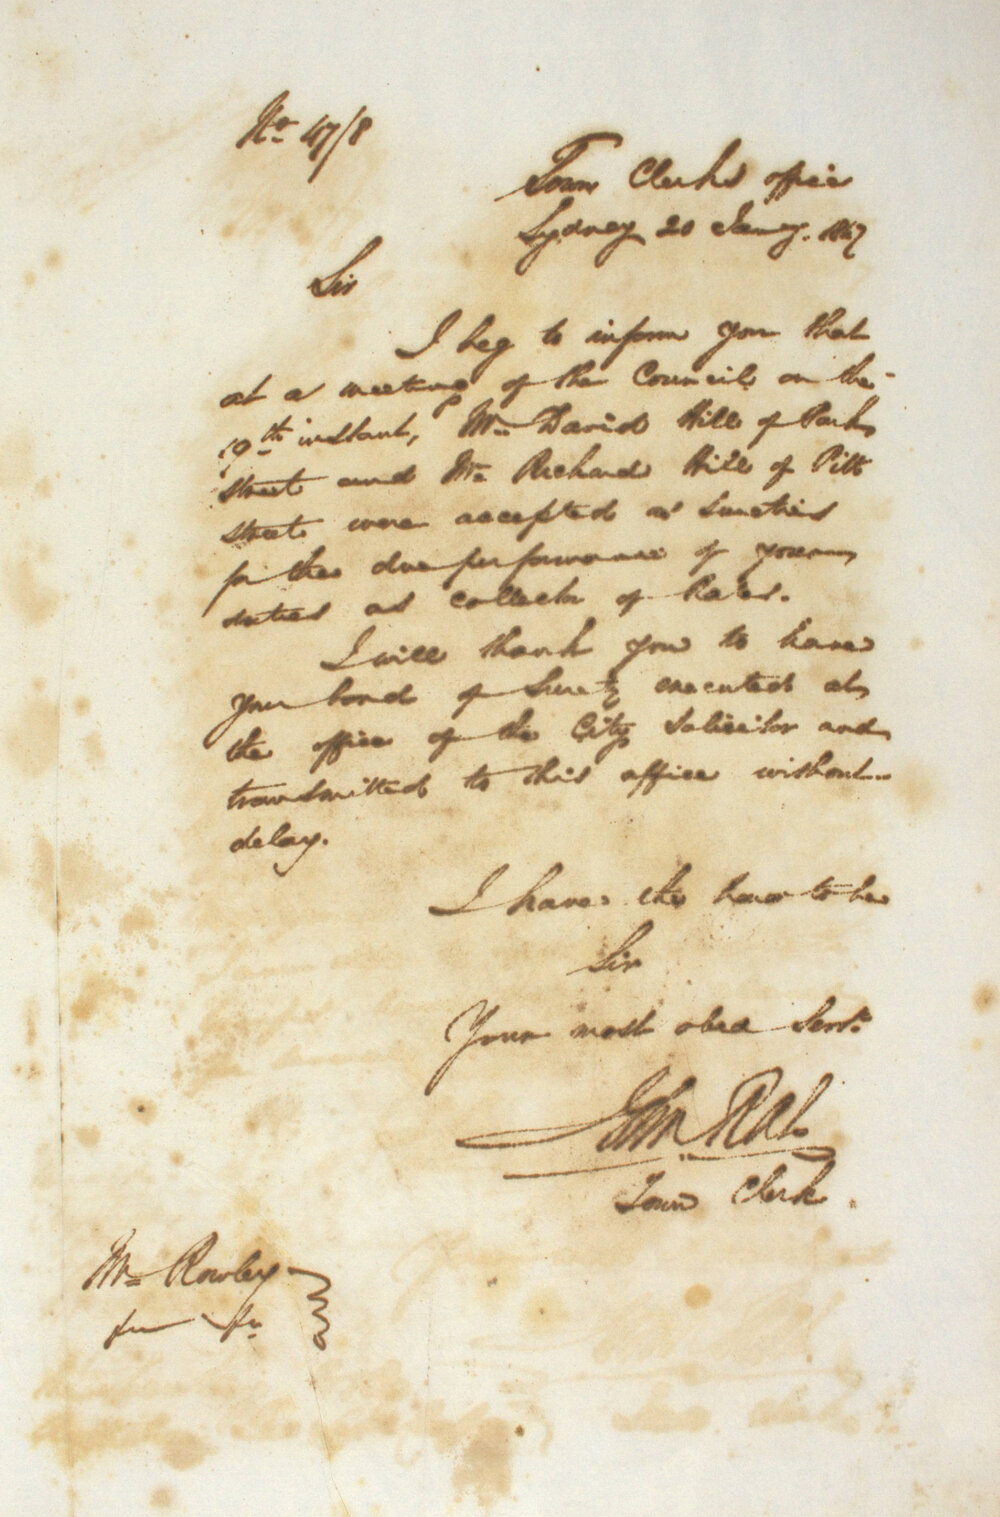 No. 47/8
Town Clerks office
Sydney 20 Jany. 1847
Sir
I beg to inform you that
at a meeting of the Council on the
19th instant, Mr. David Hill of Park
Street and Mr. Richard Hill of Pitt
Street were accepted as Sureties
for the due performance of your
duties as collector of Rates.
I will thank you to have
your bond of Surety executed at
the office of the City Solicitor and
transmitted to this office without
delay.
I have the honor to be
Sir
Your most obed Servt.
John
Town Clerk.
Mr. Rowley